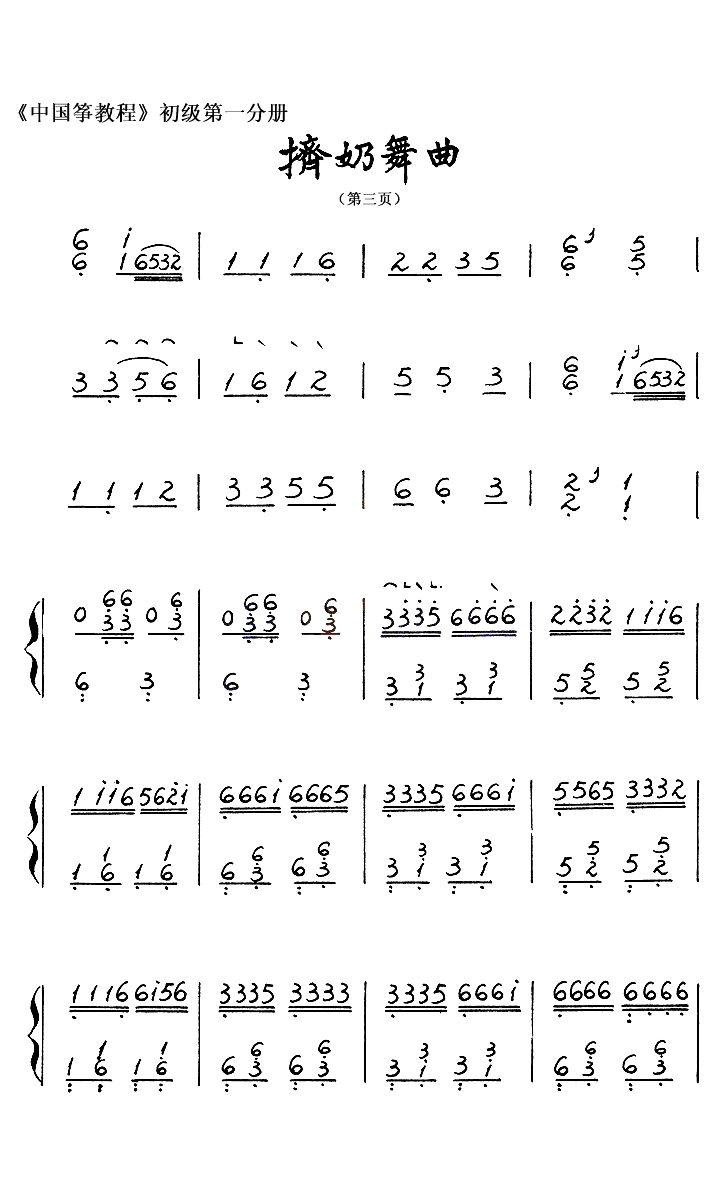 《中国筝教程》初级第一分册
挤奶舞曲
（第三页）
6 i 6 1 6532 | 1 1 1 6 | 2 2 3 5 | 6 6 5 5 |
3 3 5 6 | 1 6 1 2 | 5 5 3 | 6 6 i 1 6532 |
1 1 1 2 | 3 3 5 5 | 6 6 3 | 2 2 1 1 |
0 6 6 3 3 0 6 3 | 0 6 6 3 3 0 6 3 | 3335 6666 | 2232 1ii6
6 3 | 6 3 | 3 3 1 3 3 1 | 5 5 2 5 5 2
1ii6 562i | 666i 6665 | 3335 666i | 5565 3332
1 1 6 1 1 6 | 6 6 3 6 6 3 | 3 3 1 3 3 1 | 5 5 2 5 5 2
1116 6i56 | 3335 3333 | 3335 666i | 6666 6666
1 1 6 1 1 6 | 6 6 3 6 6 3 | 3 3 1 3 3 1 | 6 6 3 6 6 3